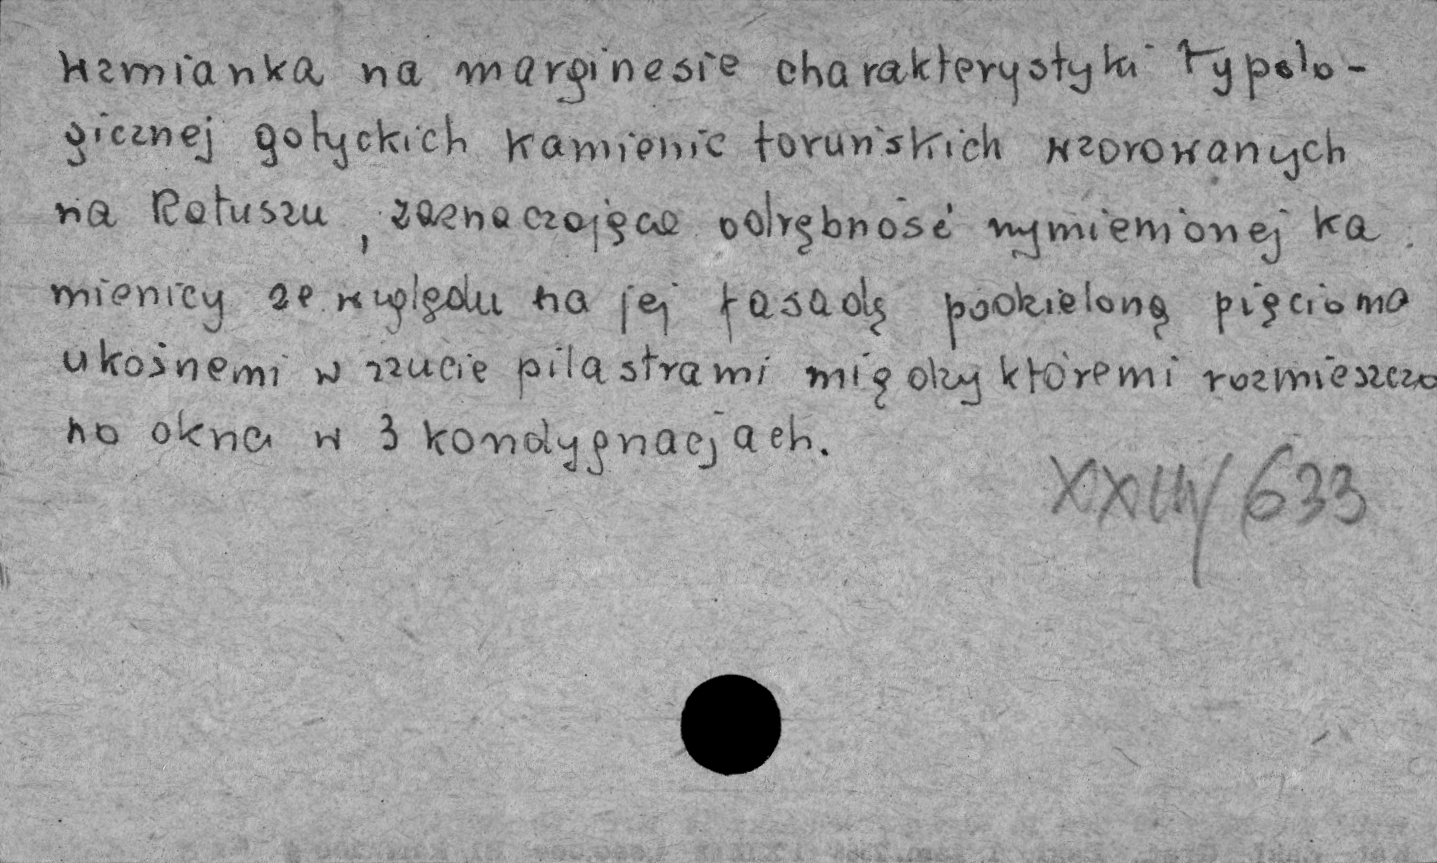 wzmianka na marginesie charakterystyki typolo-
gicznej gotyckich kamienic toruńskich wzorowanych
na Ratuszu, zaznaczająca odrębność wymienionej ka
mienicy ze względu na jej fasadę podzieloną pięcioma
ukośnemi w rzucie pilastrami między któremi rozmieszczo
no okna w 3 kondygnacjach.
XXIII/633